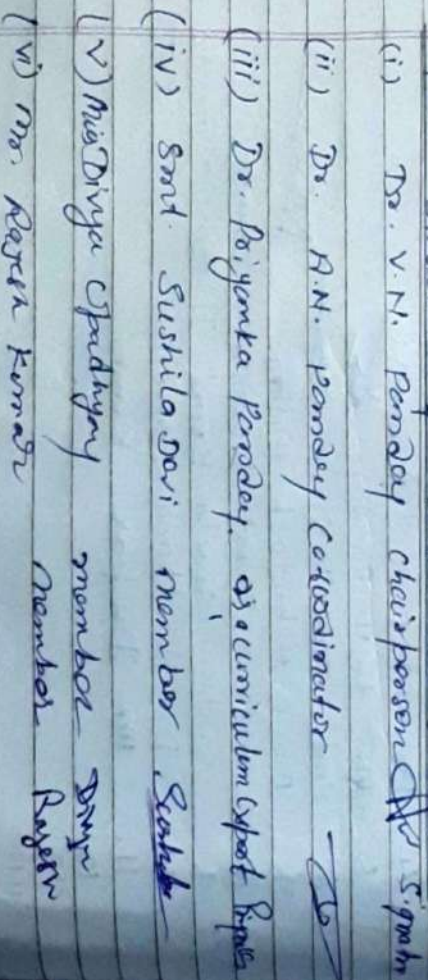 (i) Dr. V.N. Panday Chairperson Signatu
(ii) Dr. A.N. Pandey Cooordinator
(iii) Dr. Priyanka Panday. as a curriculum Expert
(iv) Smt. Sushila Davi Member
(v) Miss Divya Upadhyay member Divya
(vi) Mr. Rajesh Kumar Member Rajesh